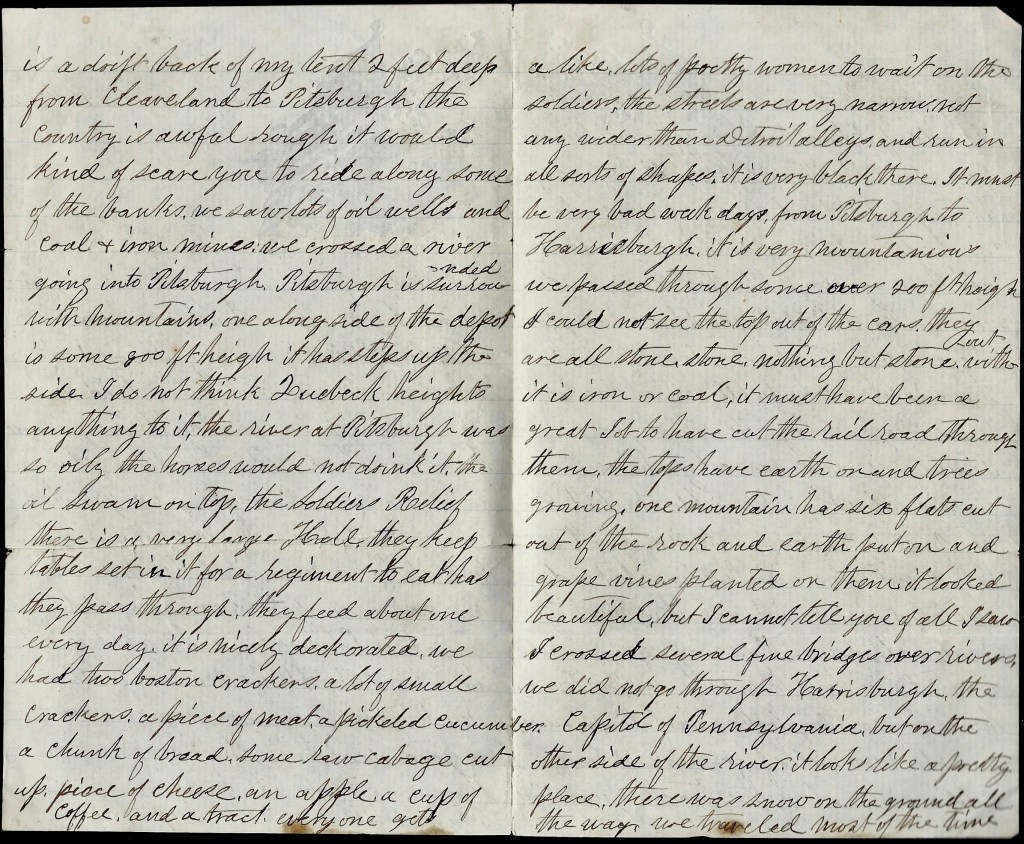 is a drift back of my tent 2 feet deep
from Cleaveland to Pitsburgh the
Country is awful rough it would
kind of scare you to ride along some
of the banks. we saw lots of oil wells and
coal & iron mines. we crossed a river
going into Pitsburgh. Pitsburgh is surrounded
with mountains, one along side of the depot
is some 800 ft heigh it has steps up the
side. I do not think Quebeck heights
anything to it, the river at Pitsburgh was
so oily the horses would not drink it, the
oil swam on top, the Soldiers Relief
there is a very large Hall, they keep
tables set in it for a regiment to eat has
they pass through, they feed about one
every day, it is nicely deckorated, we
had two boston crackers, a lot of small
crackers, a piece of meat, a pickeled cucumber.
a chunk of bread, some raw cabage cut
up, piece of cheese, an apple, a cup of
Coffee, and a tract. everyone gets
a like, lots of pretty women to wait on the
soldiers, the streets are very narrow, not
any wider than Detroit alleys, and run in
all sorts of shapes. it is very black there. It must
be very bad week days, from Pitsburgh to
Harrisburgh, it is very mountanious
we passed through some over 200 ft heigh
I could not see the top out of the cars, they
are all stone, stone, nothing but stone, without
it is iron or coal, it must have been a
great Job to have cut the rail road through
them, the tops have earth on and trees
growing, one mountain has six flats cut
out of the rock and earth put on and
grape vines planted on them it looked
beautiful, but I cannot tell you of all I saw
I crossed several fine bridges over rivers,
we did not go through Harrisburgh, the
Capitol of Pennsylvania, but on the
other side of the river. it looks like a pretty
place, there was snow on the ground all
the way, we traveled most of the time